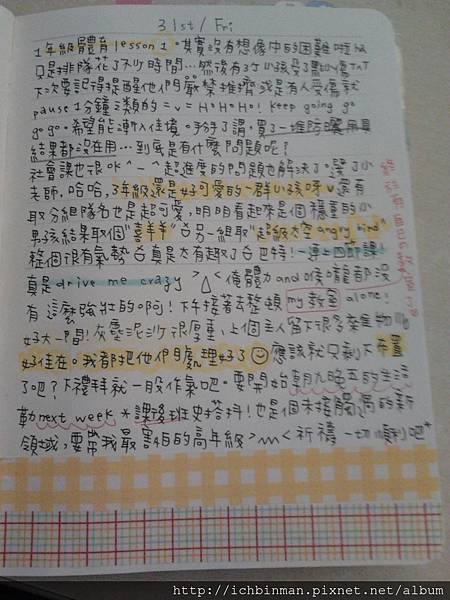 31st/Fri
1年級體育lesson 1。其實沒有想像中的困難啦ha
只是排隊花了不少時間…然後有3个小孩受了點小傷TAT
下次要記得提醒他們嚴禁推擠或是有人受傷就
pause 1分鐘之類的=v= HoHoHo! Keep going go
gogo。希望能漸入佳境。手好了謂。買了一堆防曬用具
結果都沒在用…到底是有什麼問題呢?
社會課也很OK^_^超進度的問題也解決了。選了小
老師。哈哈,3年級還是好可愛的一群小孩呀v還有
取分組隊名也是超可愛,明明看起來是個穩重的小
男孩結果取個"喜羊羊"台另一組取"超級太空angry bird"
整個很有氣勢台真是太有趣了台巴特!一連上四節課!
真是drive me crazy >△<俺體力and喉嚨都沒
有這麼強壯的啊!下午接著去整頓my教室alone!
好大一間!灰塵泥沙很厚重,上個主人留下很多棄物
好佳在。我都把他們處理好了☺應該就只剩下佈置
了吧?下禮拜就一般作氣吧。要開始朝九晚五的生活
勒next week *課後班史塔抖!也是個未接觸過的新
領域,要帶我最害怕的高年級>m<祈禱一切順利吧+
http://ichbinman.pixnet.net/album